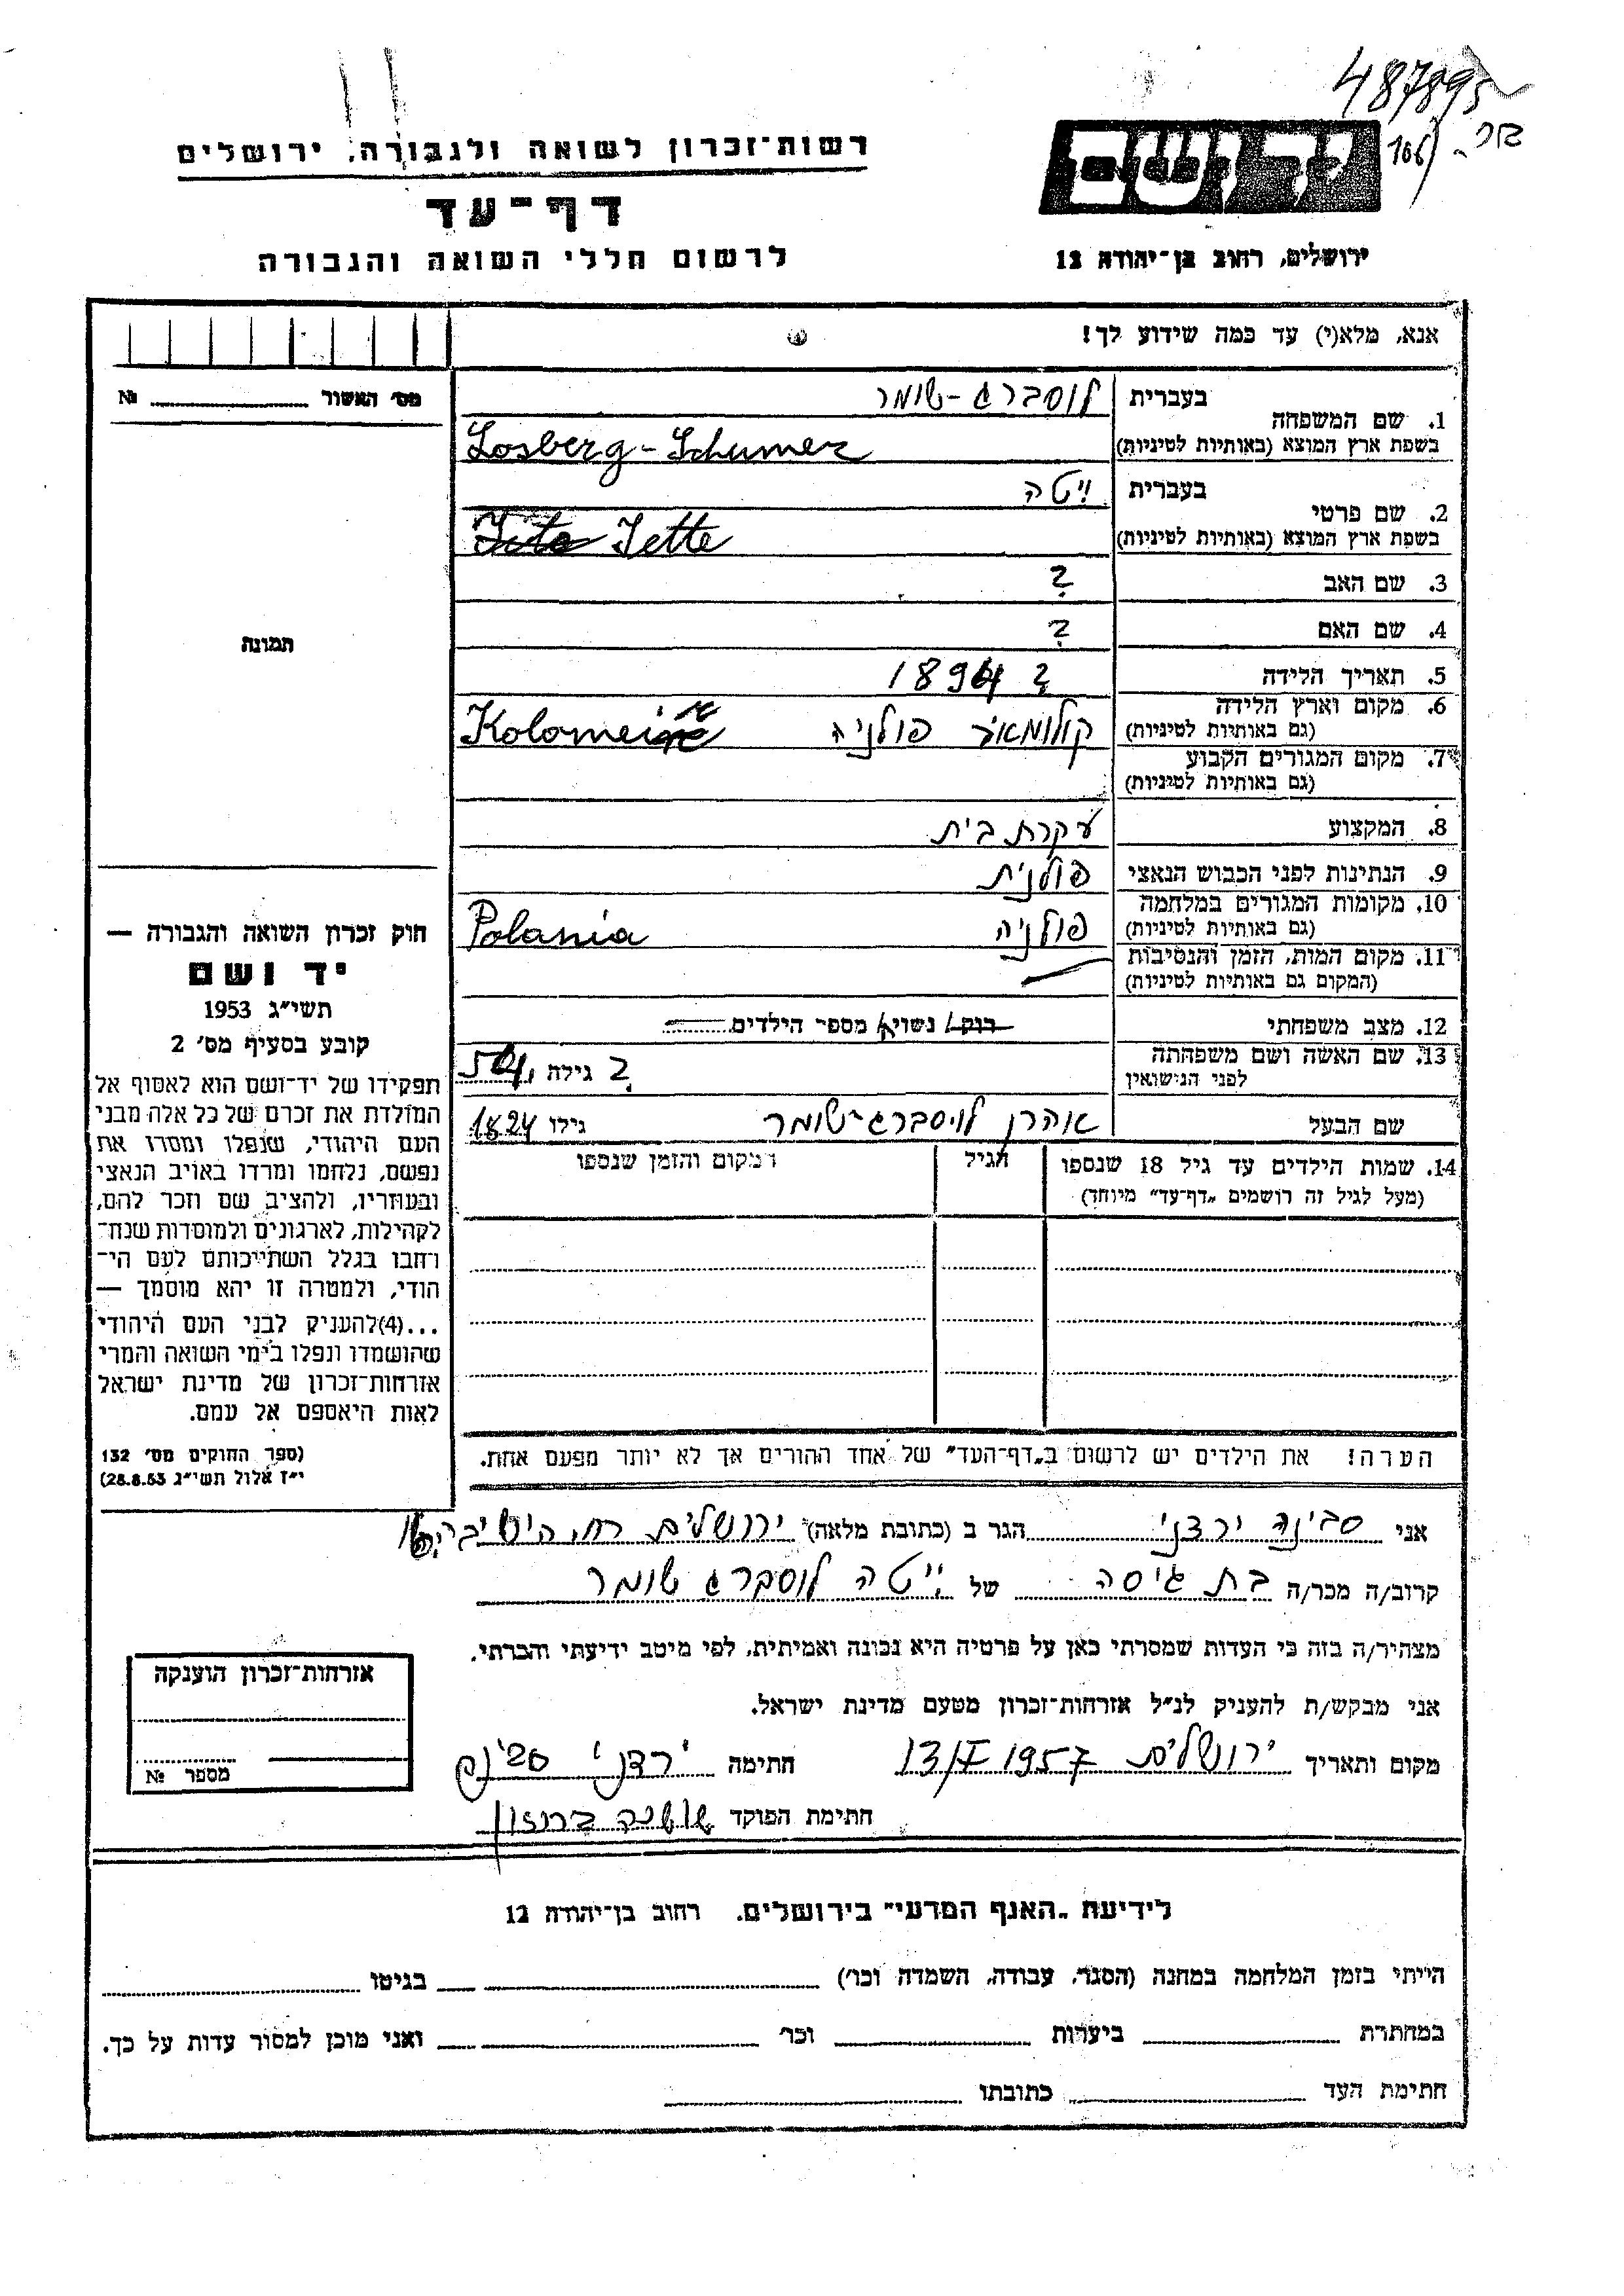 487895
106
רשות־זכרון לשואה ולגבורה, ירושלים
דף־עד
לרשום חללי השואה והגבורה
ירושלים, רחוב בן־יהודה 12
אנא, מלא(י) עד כמה שידוע לך!
מס׳ האשור № 
1. שם המשפחה
בעברית לוסברג-שומר
בשפת ארץ המוצא (באותיות לטיניות) Losberg-Schumer
2. שם פרטי
בעברית ייטה
בשפת ארץ המוצא (באותיות לטיניות) Jette
3. שם האב ?
4. שם האם ?
5. תאריך הלידה ? 1894
6. מקום וארץ הלידה
(גם באותיות לטיניות) פולניה
7. מקום המגורים הקבוע
(גם באותיות לטיניות)
8. המקצוע עקרת בית
9. הנתינות לפני הכבוש הנאצי פולנית
10. מקומות המגורים במלחמה
(גם באותיות לטיניות) פולניה Polania
11. מקום המות, הזמן והנסיבות
(המקום גם באותיות לטיניות)
12. מצב משפחתי רווק/ נשוי/ מספר הילדים
13. שם האשה ושם משפחתה
לפני הנישואין ? גילה
שם הבעל אהרן לויסברג-שומר גילו
14. שמות הילדים עד גיל 18 שנספו
(מעל לגיל זה רושמים „דף־עד״ מיוחד)
הגיל
המקום והזמן שנספו
הערה! את הילדים יש לרשום ב„דף־העד״ של אחד ההורים אך לא יותר מפעם אחת.
תמונה
חוק זכרון השואה והגבורה —
יד ושם
תשי״ג 1953
קובע בסעיף מס׳ 2
תפקידו של יד־ושם הוא לאסוף אל
המולדת את זכרם של כל אלה מבני
העם היהודי, שנפלו ומסרו את
נפשם, נלחמו ומרדו באויב הנאצי
ובעוזריו, ולהציב שם וזכר להם,
לקהילות, לארגונים ולמוסדות שנח־
רחבו בגלל השתייכותם לעם הי־
הודי, ולמטרה זו יהא מוסמך —
...(4)להעניק לבני העם היהודי
שהושמדו ונפלו בימי השואה והמרי
אזרחות־זכרון של מדינת ישראל
לאות היאספם אל עמם.
(ספר החוקים מס׳ 132
י״ז אלול תשי״ג 28.8.53)
אני סבינה ירדני הגר ב (כתובת מלאה) ירושלים רח.
קרוב/ה מכר/ה בת גיסה של ייטה לוסברג שומר
מצהיר/ה בזה כי העדות שמסרתי כאן על פרטיה היא נכונה ואמיתית, לפי מיטב ידיעתי והכרתי.
אני מבקש/ת להעניק לנ״ל אזרחות־זכרון מטעם מדינת ישראל.
מקום ותאריך ירושלים 13/I 1957 חתימה ירדני סבינה
חתימת הפוקד שושנה
אזרחות־זכרון הוענקה
מספר №
לידיעת „האגף המדעי״ בירושלים, רחוב בן־יהודה 12
הייתי בזמן המלחמה במחנה (הסגר, עבודה, השמדה וכו׳) בגיטו
במחתרת ביערות וכו׳ ואני מוכן למסור עדות על כך.
חתימת העד כתובתו